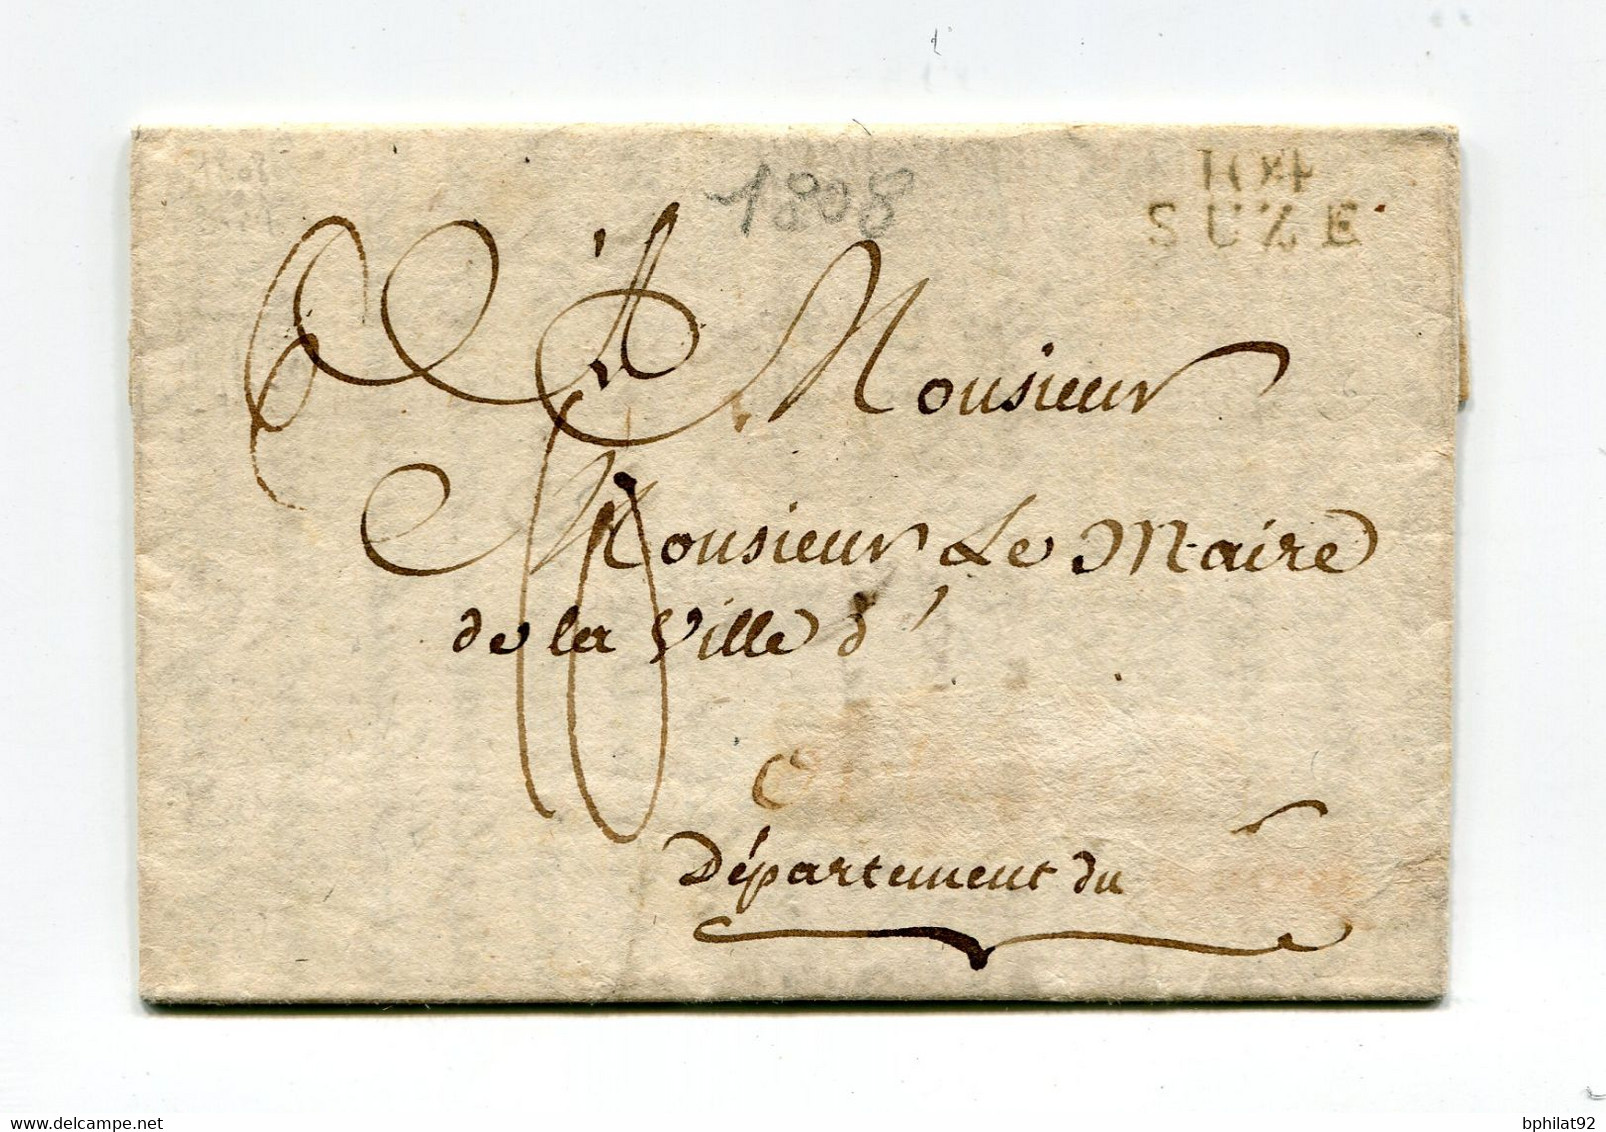 1808
104
SUZE
À Monsieur
Monsieur Le Maire
de la Ville d'
Département du
10
bphilat92